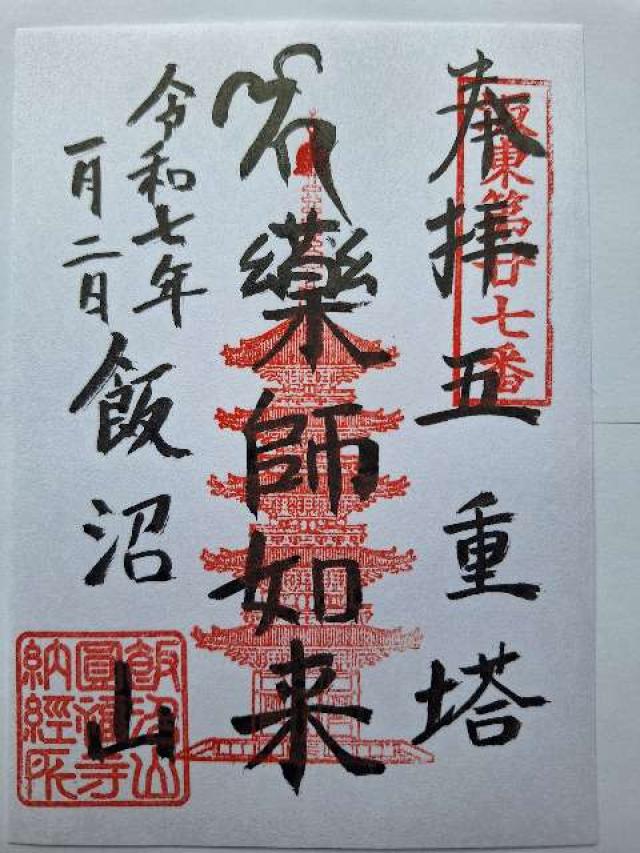 奉拝五重塔
坂東第廿七番
藥師如来
令和七年
一月二日
飯沼山
飯沼山
圓福寺
納經所